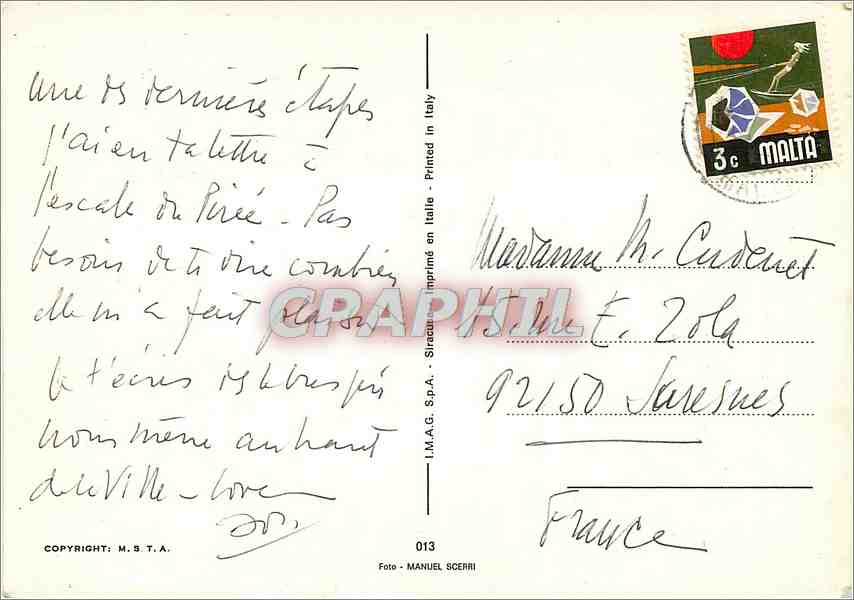 une des dernières étapes
j'ai eu ta lettre à
l'escale du Pirée - Pas
besoin de te dire combien
elle m'a fait plaisir
Je t'écris
nous mène en haut
de la Ville - Love
COPYRIGHT: M. S. T. A.
I.M.A.G. S.p.A. - Siracusa - Imprimé en Italie - Printed in Italy
CPAPHIL
013
Foto - MANUEL SCERRI
3c MALTA
Madame M. Cudenet
15 Rue E. Zola
92150 Suresnes
France